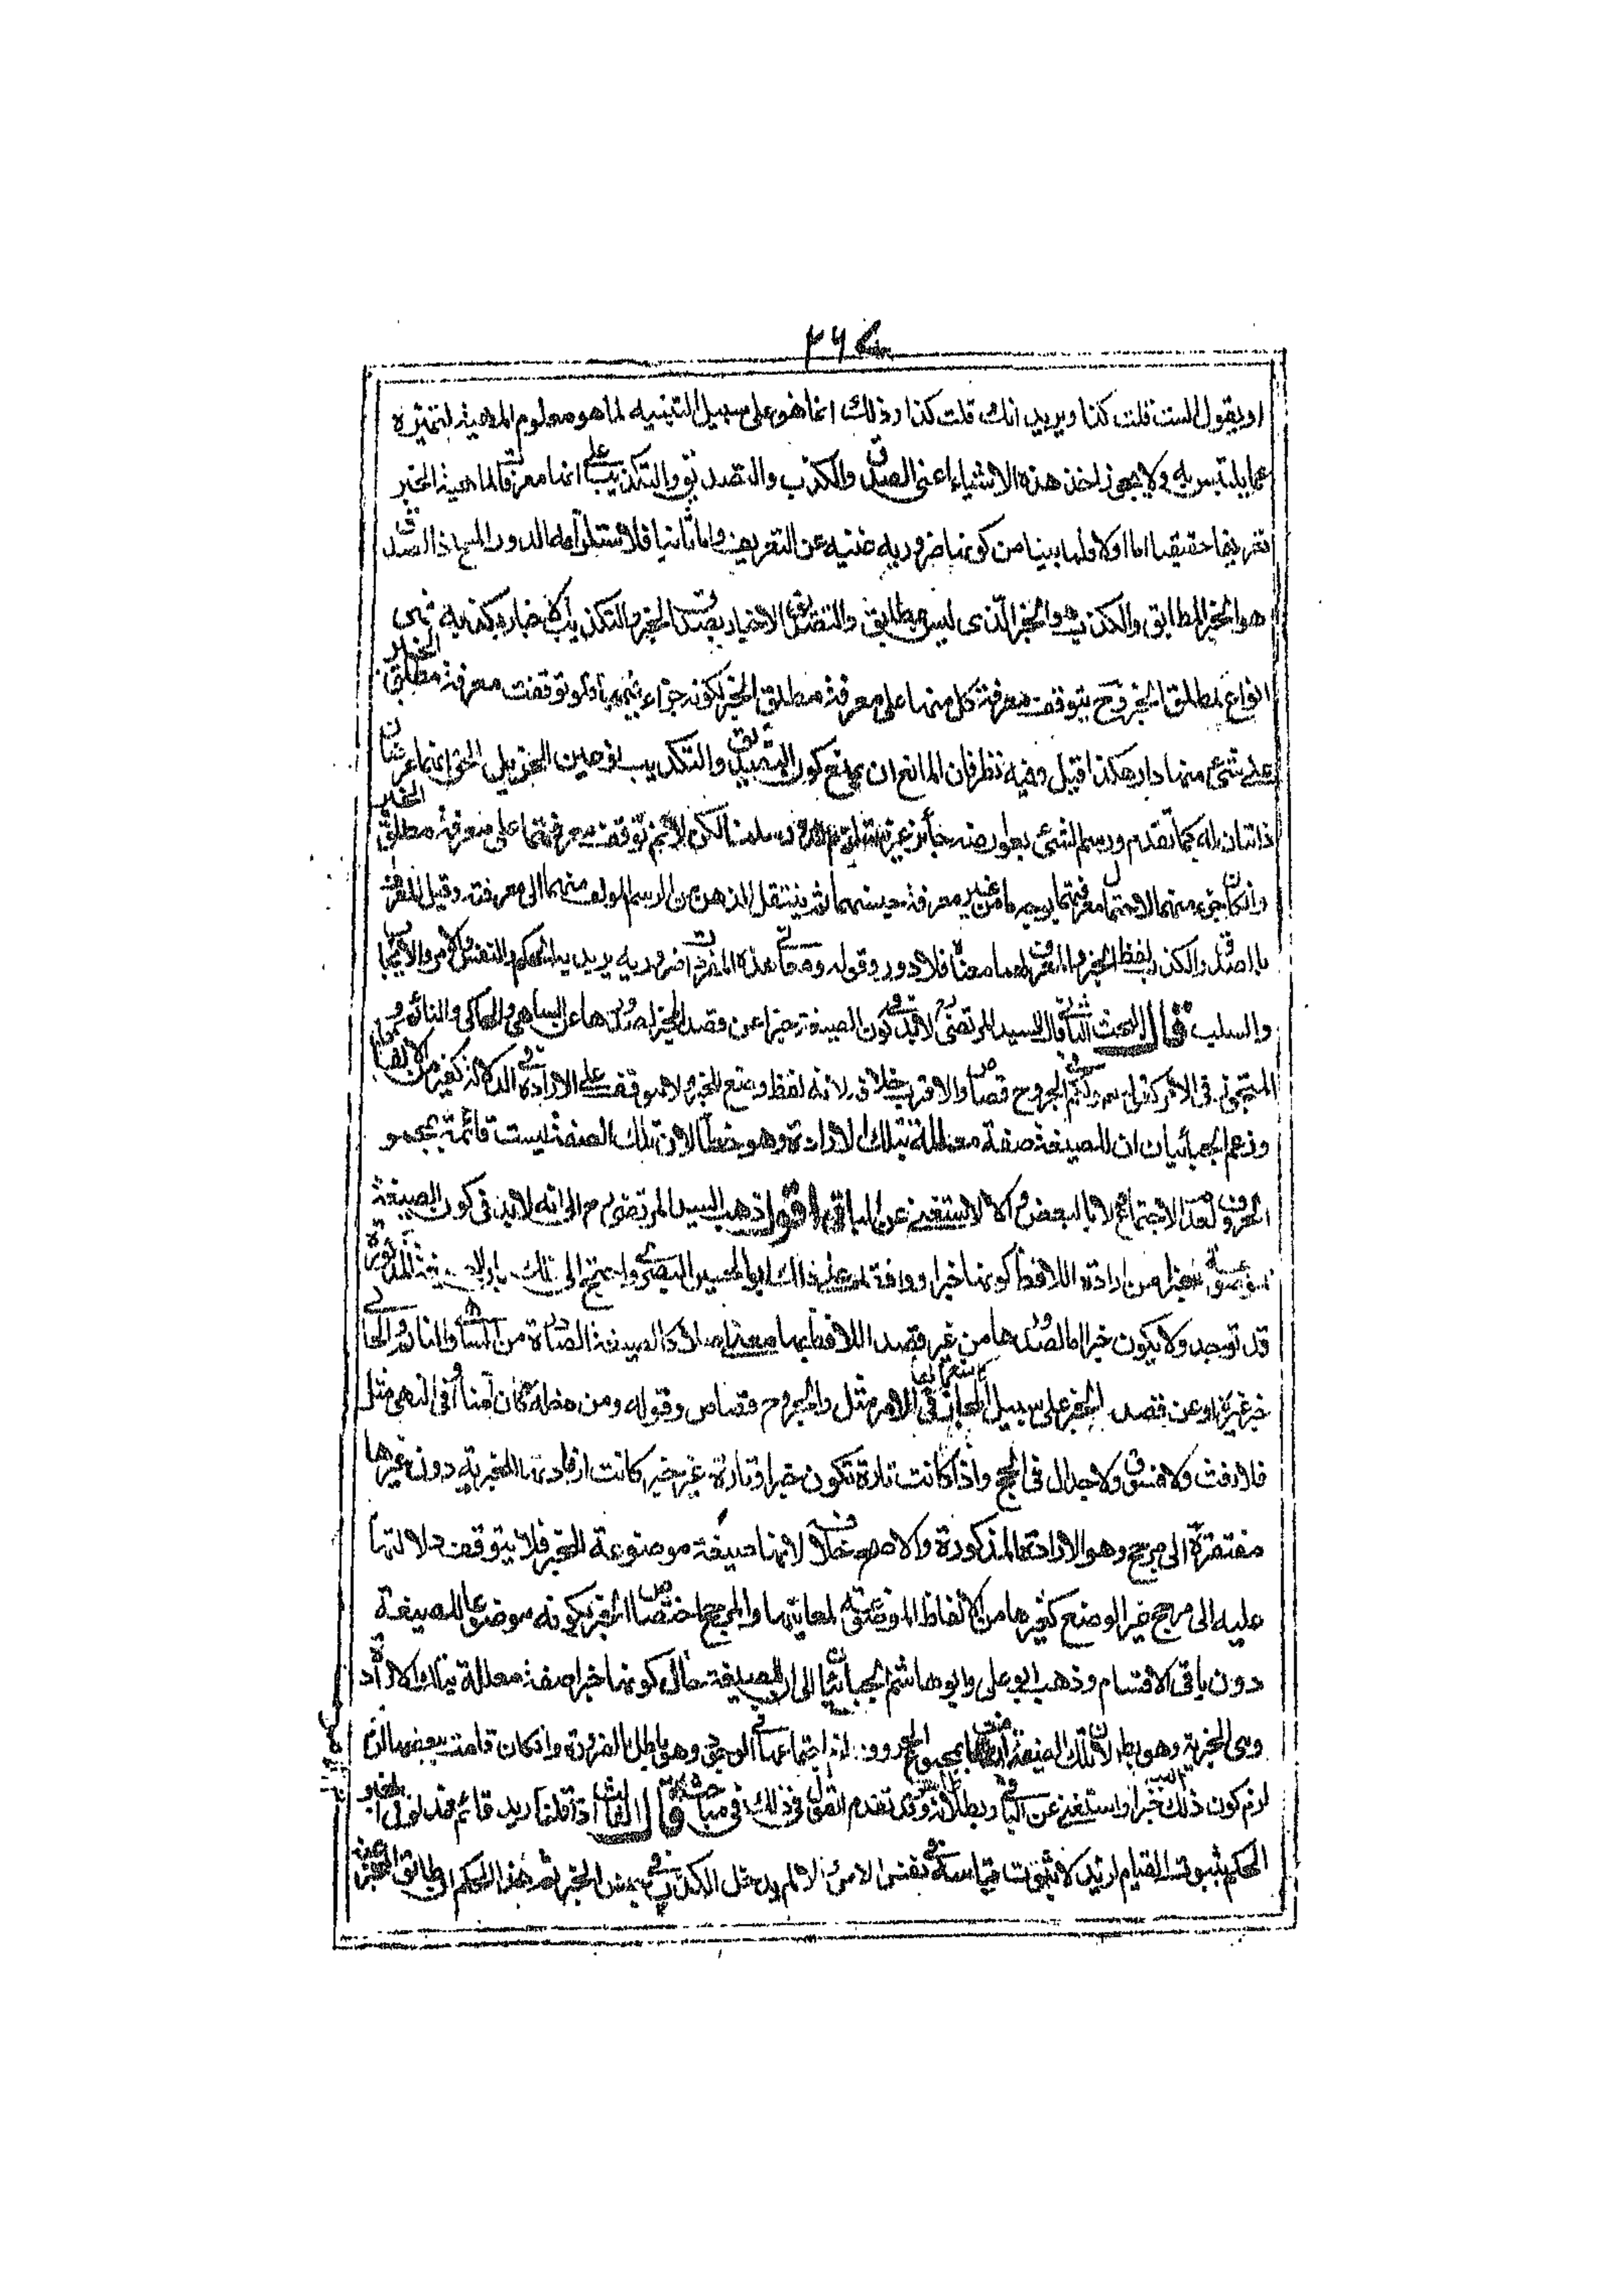 ٢٦٧
او يقول الست قلت كذا ويريد انك قلت كذا وذلك انما هو على سبيل التنبيه لما هو معلوم الماهية لتميزه
عما يلتبس به ولا يجوز اخذ هذه الاشياء اعنى الصدق والكذب والتصديق والتكذيب على انها معرفة لماهية الخبر
تعريفا حقيقيا اما اولا فلما بينا من كونها ضرورية غنيه عن التعريف واما ثانيا فلاستلزامه الدور المح اذ الصدق
هو الخبر المطابق والكذب هو الخبر الذى ليس بمطابق والتصديق الاخبار بصدق المخبر والتكذيب الاخبار بكذبه فهى
انواع لمطلق الخبر وح يتوقف معرفة كل منها على معرفة مطلق الخبر لكونه جزء منها فلو توقفت معرفة مطلق الخبر
على شئ منها دار هكذا قيل وفيه نظر فان المانع ان يمنع كون التصديق والتكذيب نوعين للخبر بل الحق انهما عرضان
ذاتيان له كما تقدم ورسم الشئ بعوارضه جائز غير مستلزم للدور سلمنا لكن لانم توقف معرفتهما على معرفة مطلق الخبر
وان كان جزء منهما لاحتمال معرفتهما بوجه ما من غير معرفة جنسهما ثم ينتقل الذهن من الرسم المؤلف منهما الى معرفته وقيل المعرفة
بالصدق والكذب لفظ الخبر والمعرف لهما معناه فلا دور وقوله ومعانى هذه المفردات ضرورية يريد به الحكم والنفس والامر والايجاب
والسلب قال البحث الثانى قال السيد المرتضى لابد فى كون الصيغة خبرا عن قصد المخبر لصدورها عن الساهى والحاكى والنائم و
المتجوز فى الامر كقوله تعالى والجروح قصاص والاقرب خلافه لانه لفظ وضع للخبر ولا يتوقف على الارادة فى الدلالة كغيره من الالفاظ
وزعم الجبائيان ان للصيغة صفة معللة بتلك الارادة وهو خطأ لان تلك الصفة ليست قائمة بمجموع
الحروف لعدم الاجتماع ولا بالبعض والا لاستغنى عن الباقى اقول ذهب السيد المرتضى رم الى انه لابد فى كون الصيغة
خبرا من ارادة اللافظ كونها خبرا ووافقه على ذلك ابو الحسين البصرى واحتج الى ذلك بان الصيغة المذكورة
قد توجد ولا يكون خبرا اما لصدورها من غير قصد اللافظ بها معنى اصلا كالصيغة الصادرة من الساهى والنائم والحاكى
خبر غيره او عن قصد الخبر على سبيل المجاز فى الامر مثل والجروح قصاص وقوله ومن دخله كان آمنا او فى النهى مثل
فلا رفث ولا فسوق ولا جدال فى الحج واذا كانت تارة تكون خبرا وتارة غير خبر كانت افادتها الخبرية دون غيرها
مفتقرة الى مرجح وهو الارادة المذكورة والاصح خلافه لانها صيغة موضوعة للخبر فلا يتوقف دلالتها
عليه الى مرجح غير الوضع كغيرها من الالفاظ الموضوعة لمعانيها والمرجح اختصاص الخبر بكونه موضوعا للصيغة
دون باقى الاقسام وذهب ابو على وابو هاشم الجبائيان الى ان للصيغة حال كونها خبرا صفة معللة بتلك الارادة
وهى الخبرية وهو بط لان تلك الصفة ان قامت بمجموع الحروف لزم اجتماعها فى الوجود وهو باطل بالضرورة وان كان قامت ببعضها لزم
لزم كون ذلك البعض خبرا واستغنى عن الباقى وبطلانه ظ وقد تقدم القول فى ذلك فى مباحث قال الثالث اذا قلنا زيد قائم فمدلول الخبر
الحكم بثبوت القيام لزيد لا ثبوت قيامه فى نفس الامر والا لم يدخل الكذب فى جنس الخبر ثم هذا الحكم ان طابق المخبر عنه